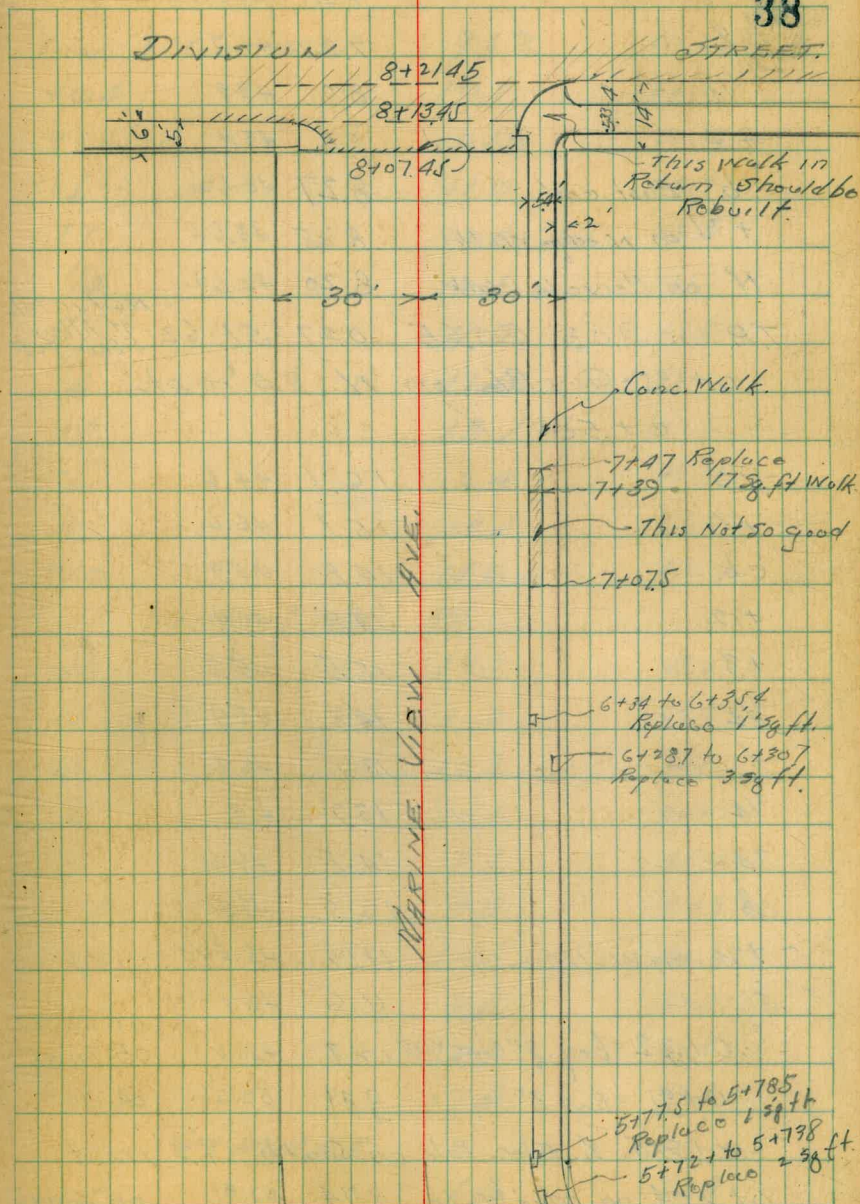 38
DIVISION STREET.
8+21.45
8+13.45
8+07.45
6'
5'
5.4
14'
This walk in
Return should be
Rebuilt.
5.4'
2'
30' 30'
Conc. Walk.
7+47 Replace
17 Sq. ft Walk.
7+39
This Not so good
7+07.5
MARINE VIEW AVE.
6+34 to 6+35.4
Replace 1 sq ft.
6+28.7 to 6+30.7
Replace 3 sq ft.
5+77.5 to 5+78.5
Replace 1 sq ft
5+72.1 to 5+73.8
Replace 2 sq ft.